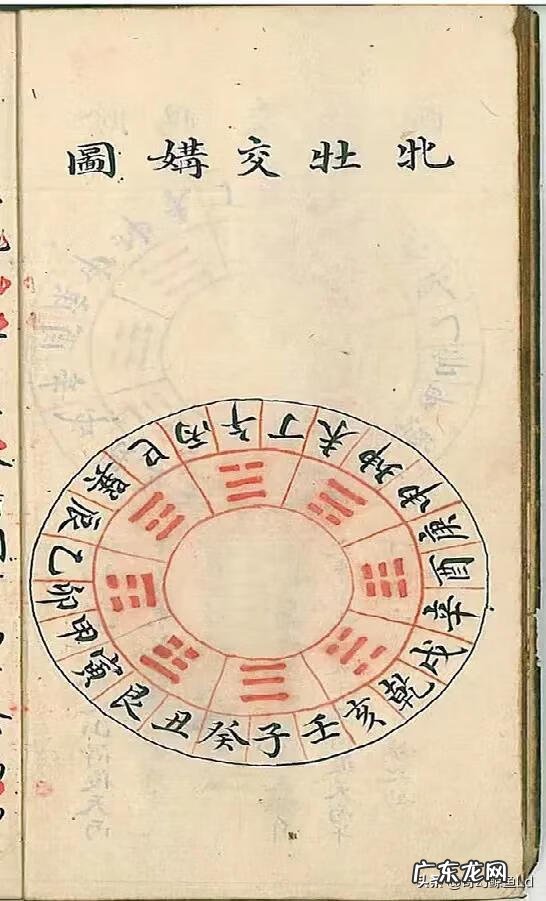 牝牡交媾圖
子癸丑艮寅甲卯乙辰巽巳丙午丁未坤申庚酉辛戌乾亥壬
广东龙网